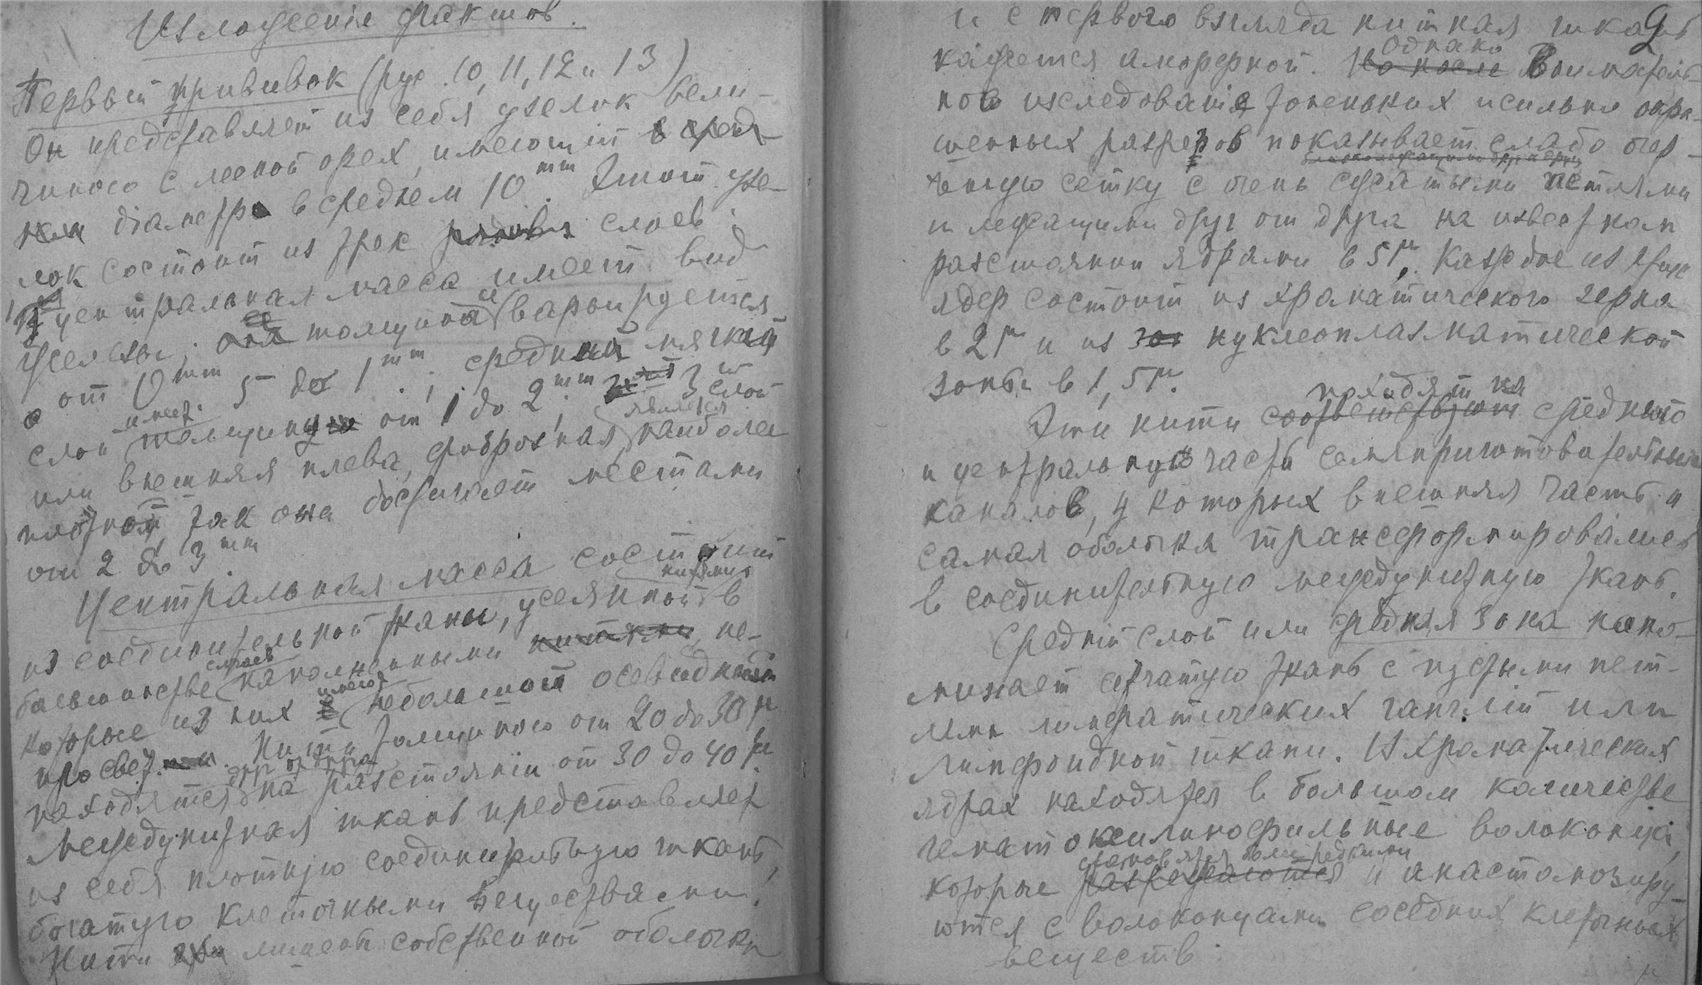 Изложеніе фактов.
Первый прививок (рус. 10, 11, 12 и 13)
Он представляет из себя узелок вели-
чиною с лесной орех, имеющій в сред-
діаметр в среднем 10 mm. Этот узе-
лок состоит из трех слоев.
1 центральная масса имеет вид
ее толщина варьируется
от 0 mm 5 до 1 mm; средний мягкий
имеет.
слой толщину от 1 до 2 mm; 3 слой
является
или внешняя плева, фиброзная наиболее
плотной, так она достигает местами
от 2 до 3 mm
Центральная масса состоит
нитями
из соединительной ткани, усеянной в
случаев
большинстве наполненными нитями, не-
имеют
которые из них небольшой осевидный
просвет. Нити толщиною от 20 до 30 μ
друг от друга
находятся на разстоянии от 30 до 40 μ.
Междунитная ткань представляет
из себя плотную соединительную ткань,
богатую клеточными веществами.
Нити лишены собственной оболочки
9
и с первого взгляда нитная ткань
однако
кажется аморфной. Но после Вниматель
ное изследование тоненьких и сильно окра-
шенных разрезов показывает слабо очер-
ченную сетку с очень сжатыми петлями
и лежащими друг от друга на известном
разстоянии ядрами в 5 μ. Каждое из этих
ядер состоит из хроматического зерна
в 2 μ и из нуклеоплазматической
зоны в 1,5 μ.
походят на
Эти нити соответствуют среднюю
и центральную часть семяприготовительных
каналов, у которых внешняя часть и
самая оболочка трансформировались
в соединительную междунитную ткань.
Средній слой или средняя зона напо-
минает сетчатую ткань с пустыми пет-
лями лимфатических ганглій или
лимфоидной ткани. В хроматических
ядрах находятся в большом количестве
гематоксилинофильные волоконца,
становятся более редкими
которые разрежаются и анастомозиру-
ются с волоконцами соседних клеточных
веществ.